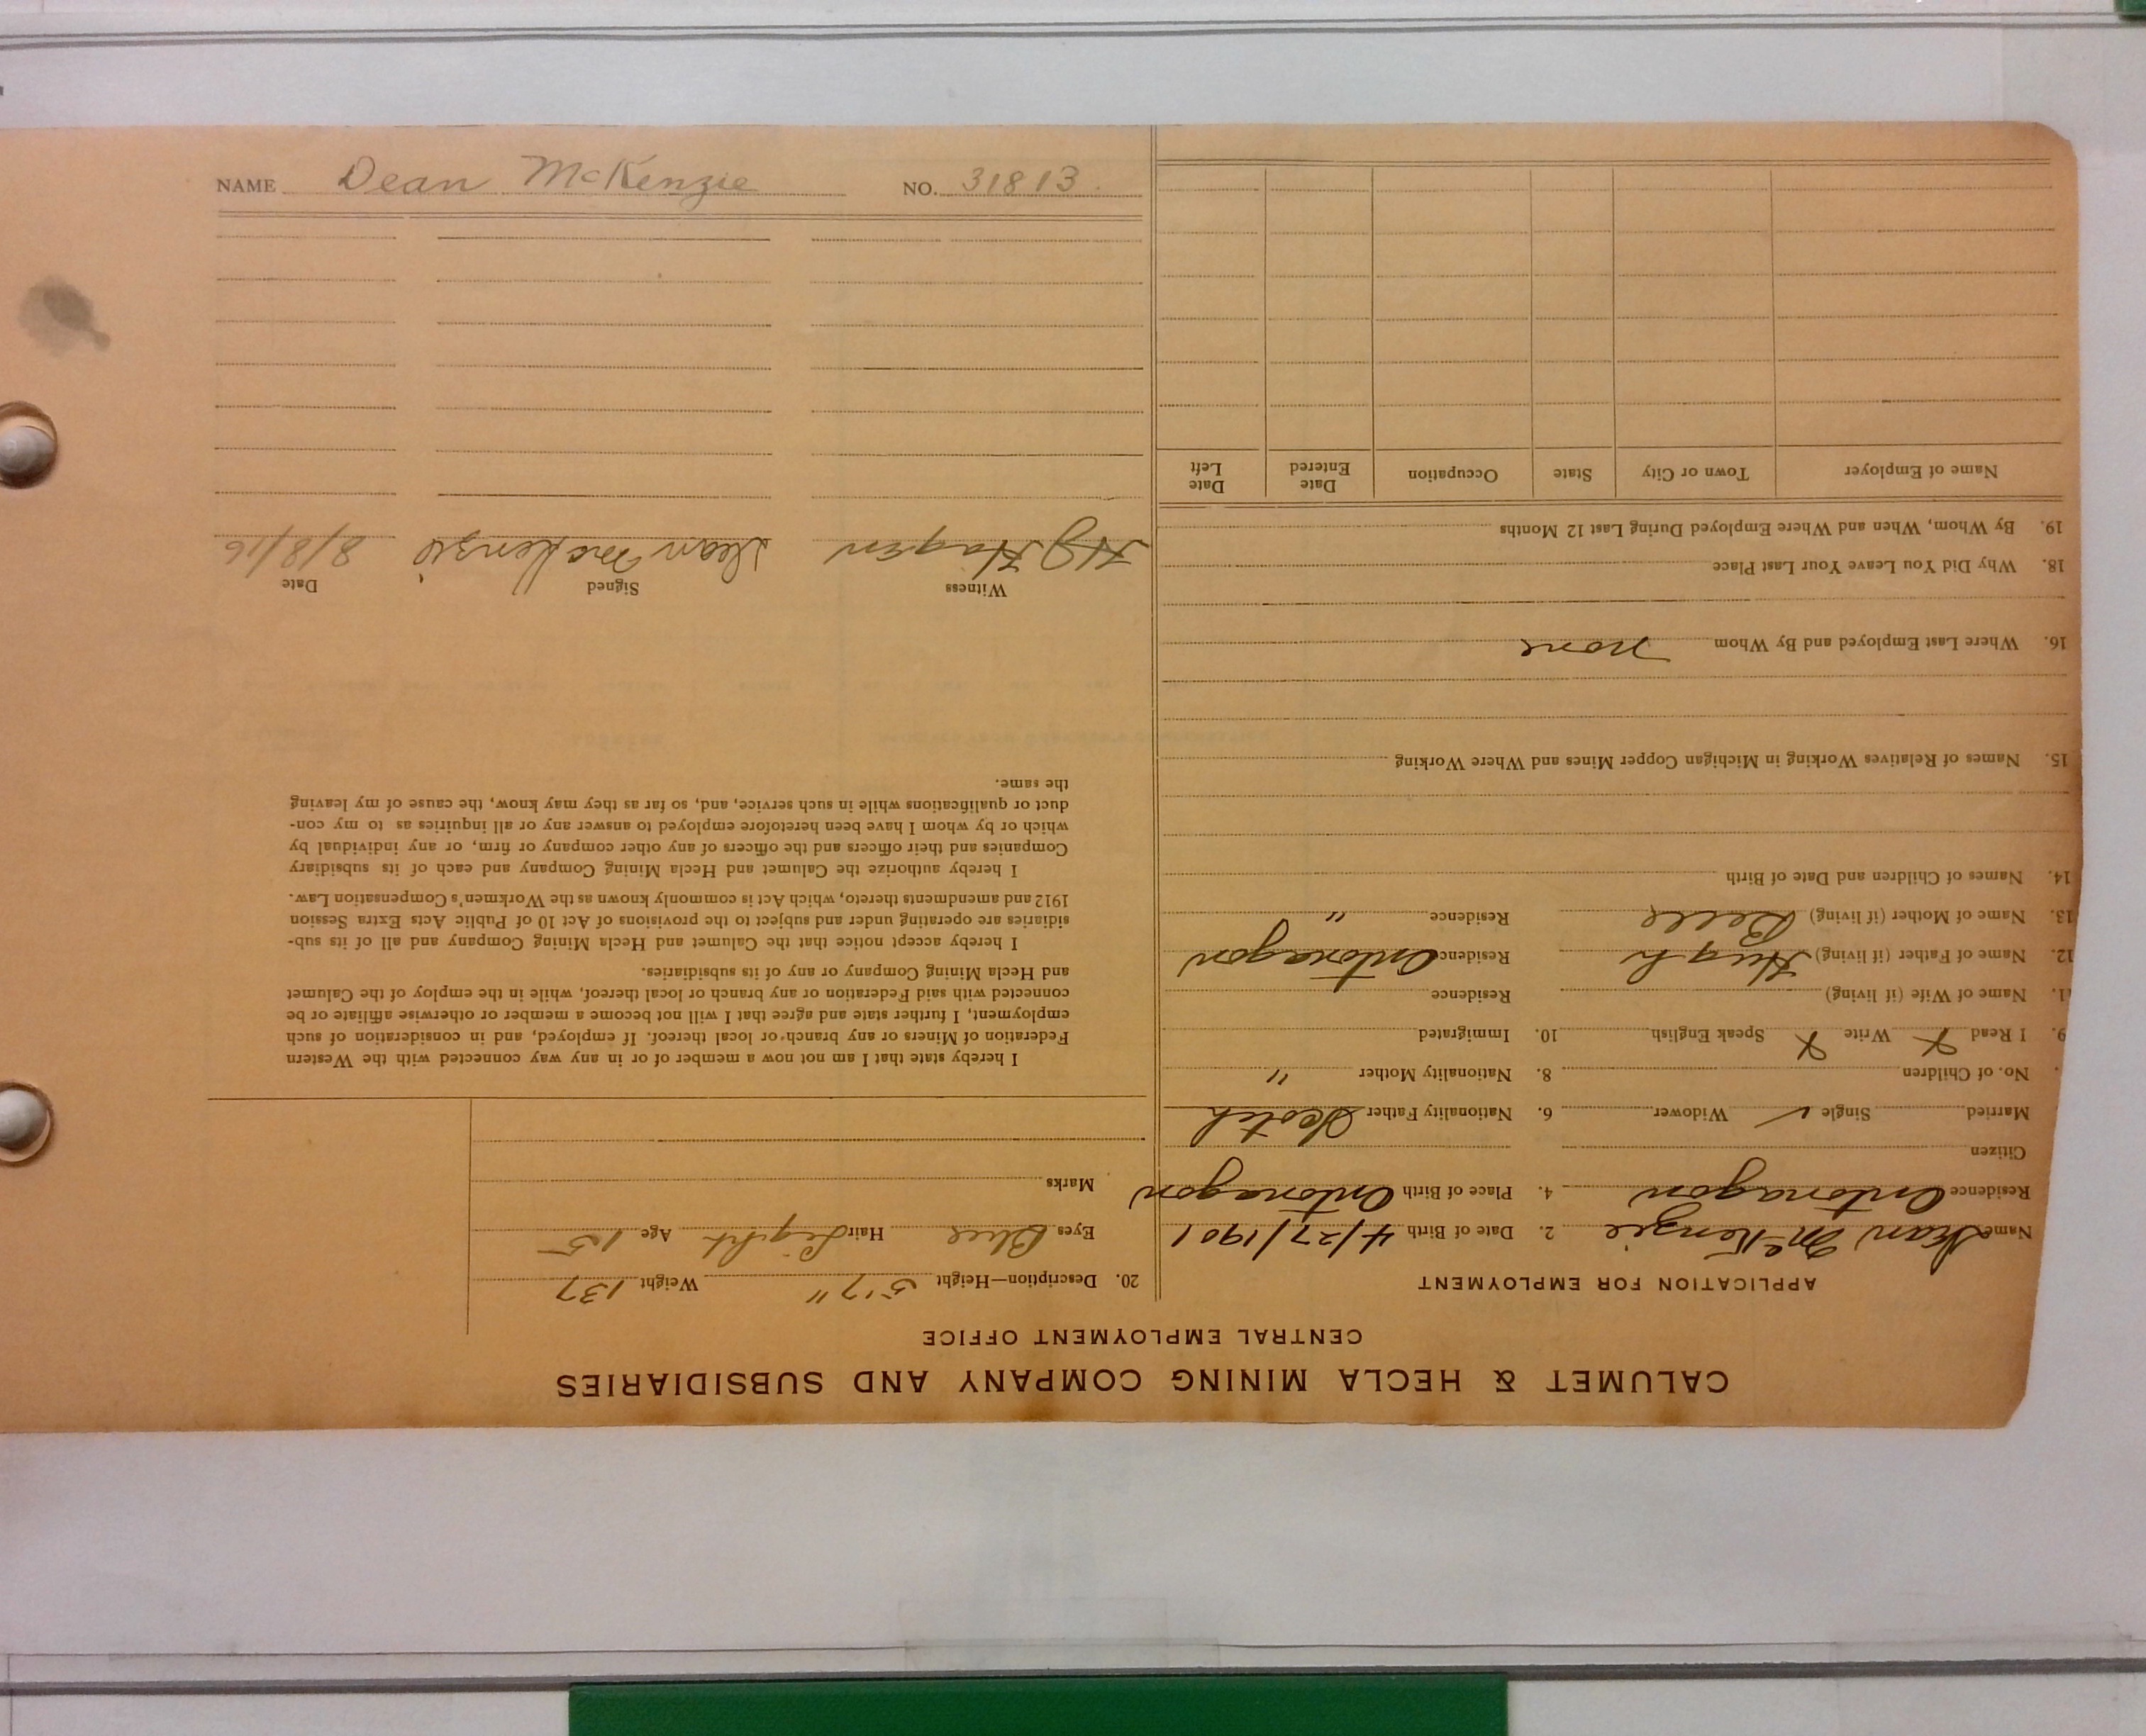 CALUMET & HECLA MINING COMPANY AND SUBSIDIARIES
CENTRAL EMPLOYMENT OFFICE
APPLICATION FOR EMPLOYMENT
Name Dean McKenzie 2. Date of Birth 4/27/1901
Residence Ontonagon 4. Place of Birth Ontonagon
Citizen
Married Single ✓ Widower 6. Nationality Father Scotch
No. of Children 8. Nationality Mother "
9. I Read X Write X Speak English 10. Immigrated
11. Name of Wife (if living) Residence
12. Name of Father (if living) Hugh Residence Ontonagon
13. Name of Mother (if living) Belle Residence "
14. Names of Children and Date of Birth
15. Names of Relatives Working in Michigan Copper Mines and Where Working
16. Where Last Employed and By Whom none
18. Why Did You Leave Your Last Place
19. By Whom, When and Where Employed During Last 12 Months
Name of Employer Town or City State Occupation Date Entered Date Left
20. Description—Height 5'7" Weight 137
Eyes Blue Hair Light Age 15
Marks
I hereby state that I am not now a member of or in any way connected with the Western
Federation of Miners or any branch or local thereof. If employed, and in consideration of such
employment, I further state and agree that I will not become a member or otherwise affiliate or be
connected with said Federation or any branch or local thereof, while in the employ of the Calumet
and Hecla Mining Company or any of its subsidiaries.
I hereby accept notice that the Calumet and Hecla Mining Company and all of its sub-
sidiaries are operating under and subject to the provisions of Act 10 of Public Acts Extra Session
1912 and amendments thereto, which Act is commonly known as the Workmen's Compensation Law.
I hereby authorize the Calumet and Hecla Mining Company and each of its subsidiary
Companies and their officers and the officers of any other company or firm, or any individual by
which or by whom I have been heretofore employed to answer any or all inquiries as to my con-
duct or qualifications while in such service, and, so far as they may know, the cause of my leaving
the same.
Witness Signed Date
Hagen Dean McKenzie 8/8/16
NAME Dean McKenzie NO. 31813